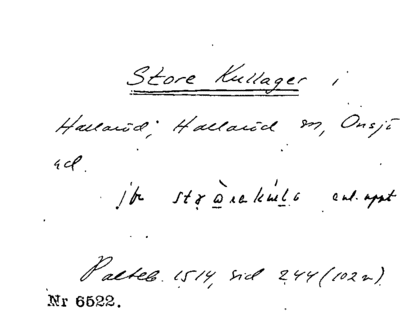 Store Kullager i
Hallaröd, Hallaröd sn, Onsjö
hd.
jfr enl. uppt
Palteb. 1514, sid 244 (102 v)
Nr 6522.